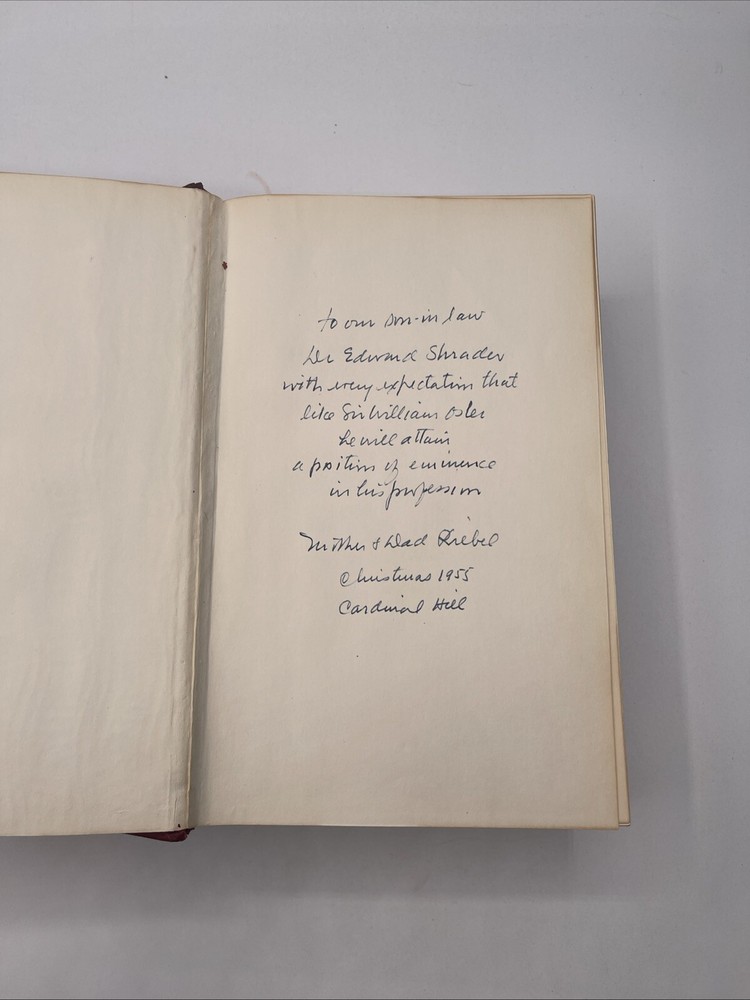 to our son-in law
Dr Edward Shrader
with every expectation that
like Sir William Osler
he will attain
a position of eminence
in his profession
Mother & Dad
Christmas 1955
Cardinal Hill